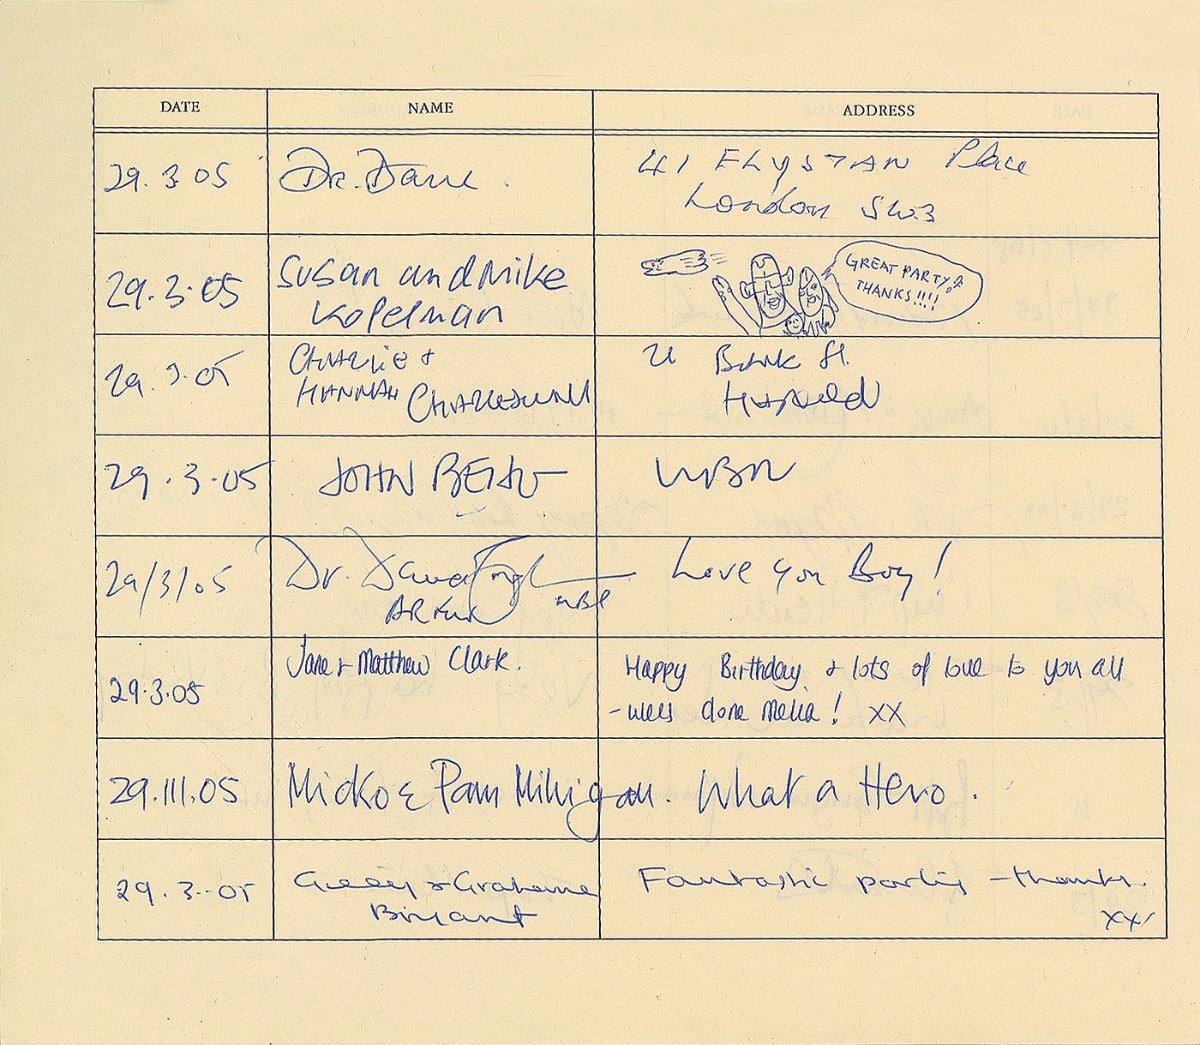 DATE NAME ADDRESS
29.3.05 Dr. Dave. 41 ELYSTAN Place
London SW3
29.3.05 Susan and Mike
Kopelman
GREAT PARTY!
THANKS!!!!
29.3.05 CHARLIE + Bank St.
HANNAH
29.3.05 JOHN
29/3/05 Dr. Love you Boy!
29.3.05 Jane + Matthew Clark. Happy Birthday + lots of love to you all
- well done Melia! XX
29.III.05 Micko & Pam Milligan. What a Hero.
29.3.05 Gilly + Grahame Fantastic party - thanks.
Bryant xx